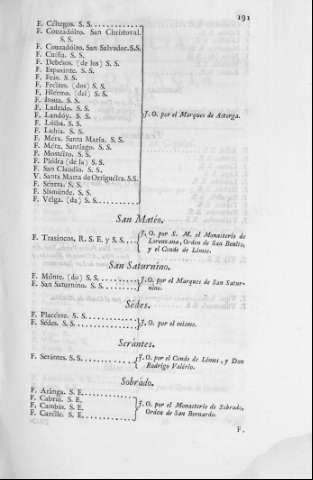 191
F. Céltigos. S. S.
F. Couzadóiro. San Christoval.
S. S.
F. Couzadóiro. San Salvador. S.S.
F. Cuíña. S. S.
F. Debésos. (de los) S. S.
F. Espasante. S. S.
F. Feás. S. S.
F. Freires. (dos) S. S.
F. S. S.
F. Insua. S. S.
F. Ladrído. S. S.
F. Landóy. S. S.
F. Lóiba. S. S.
F. Luhía. S. S.
F. Méra. Santa María. S. S.
F. Méra. Santiago. S. S.
F. Mosteiro. S. S.
F. Piédra (de la) S. S.
F. San Claudio. S. S.
V. Santa Marta de Ortiguéira. S.S.
F. Senrra. S. S.
F. Sismúnde. S. S.
F. Véiga. (da) S. S.
J. O. por el Marques de Astorga.
San Matéo.
F. Trasáncos, R. S. E. y S. S.
J. O. por S. M. el Monasterio de
Lorenzana, Orden de San Benito,
y el Conde de Lemus.
San Saturnino.
F. Mónte. (do) S. S.
F. San Saturnino. S. S.
J. O. por el Marques de San Satur-
nino.
Sédes.
F. Placénte. S. S.
F. Sédes. S. S.
J. O. por el mismo.
Serántes.
F. Serántes. S. S.
J. O. por el Conde de Lémus, y Don
Rodrigo Valério.
Sobrádo.
F. Aránga. S. E.
F. Cabrúi. S. E.
F. Cambás. S. E.
F. Carélle. S. E.
J. O. por el Monasterio de Sobrado,
Orden de San Bernardo.
F.